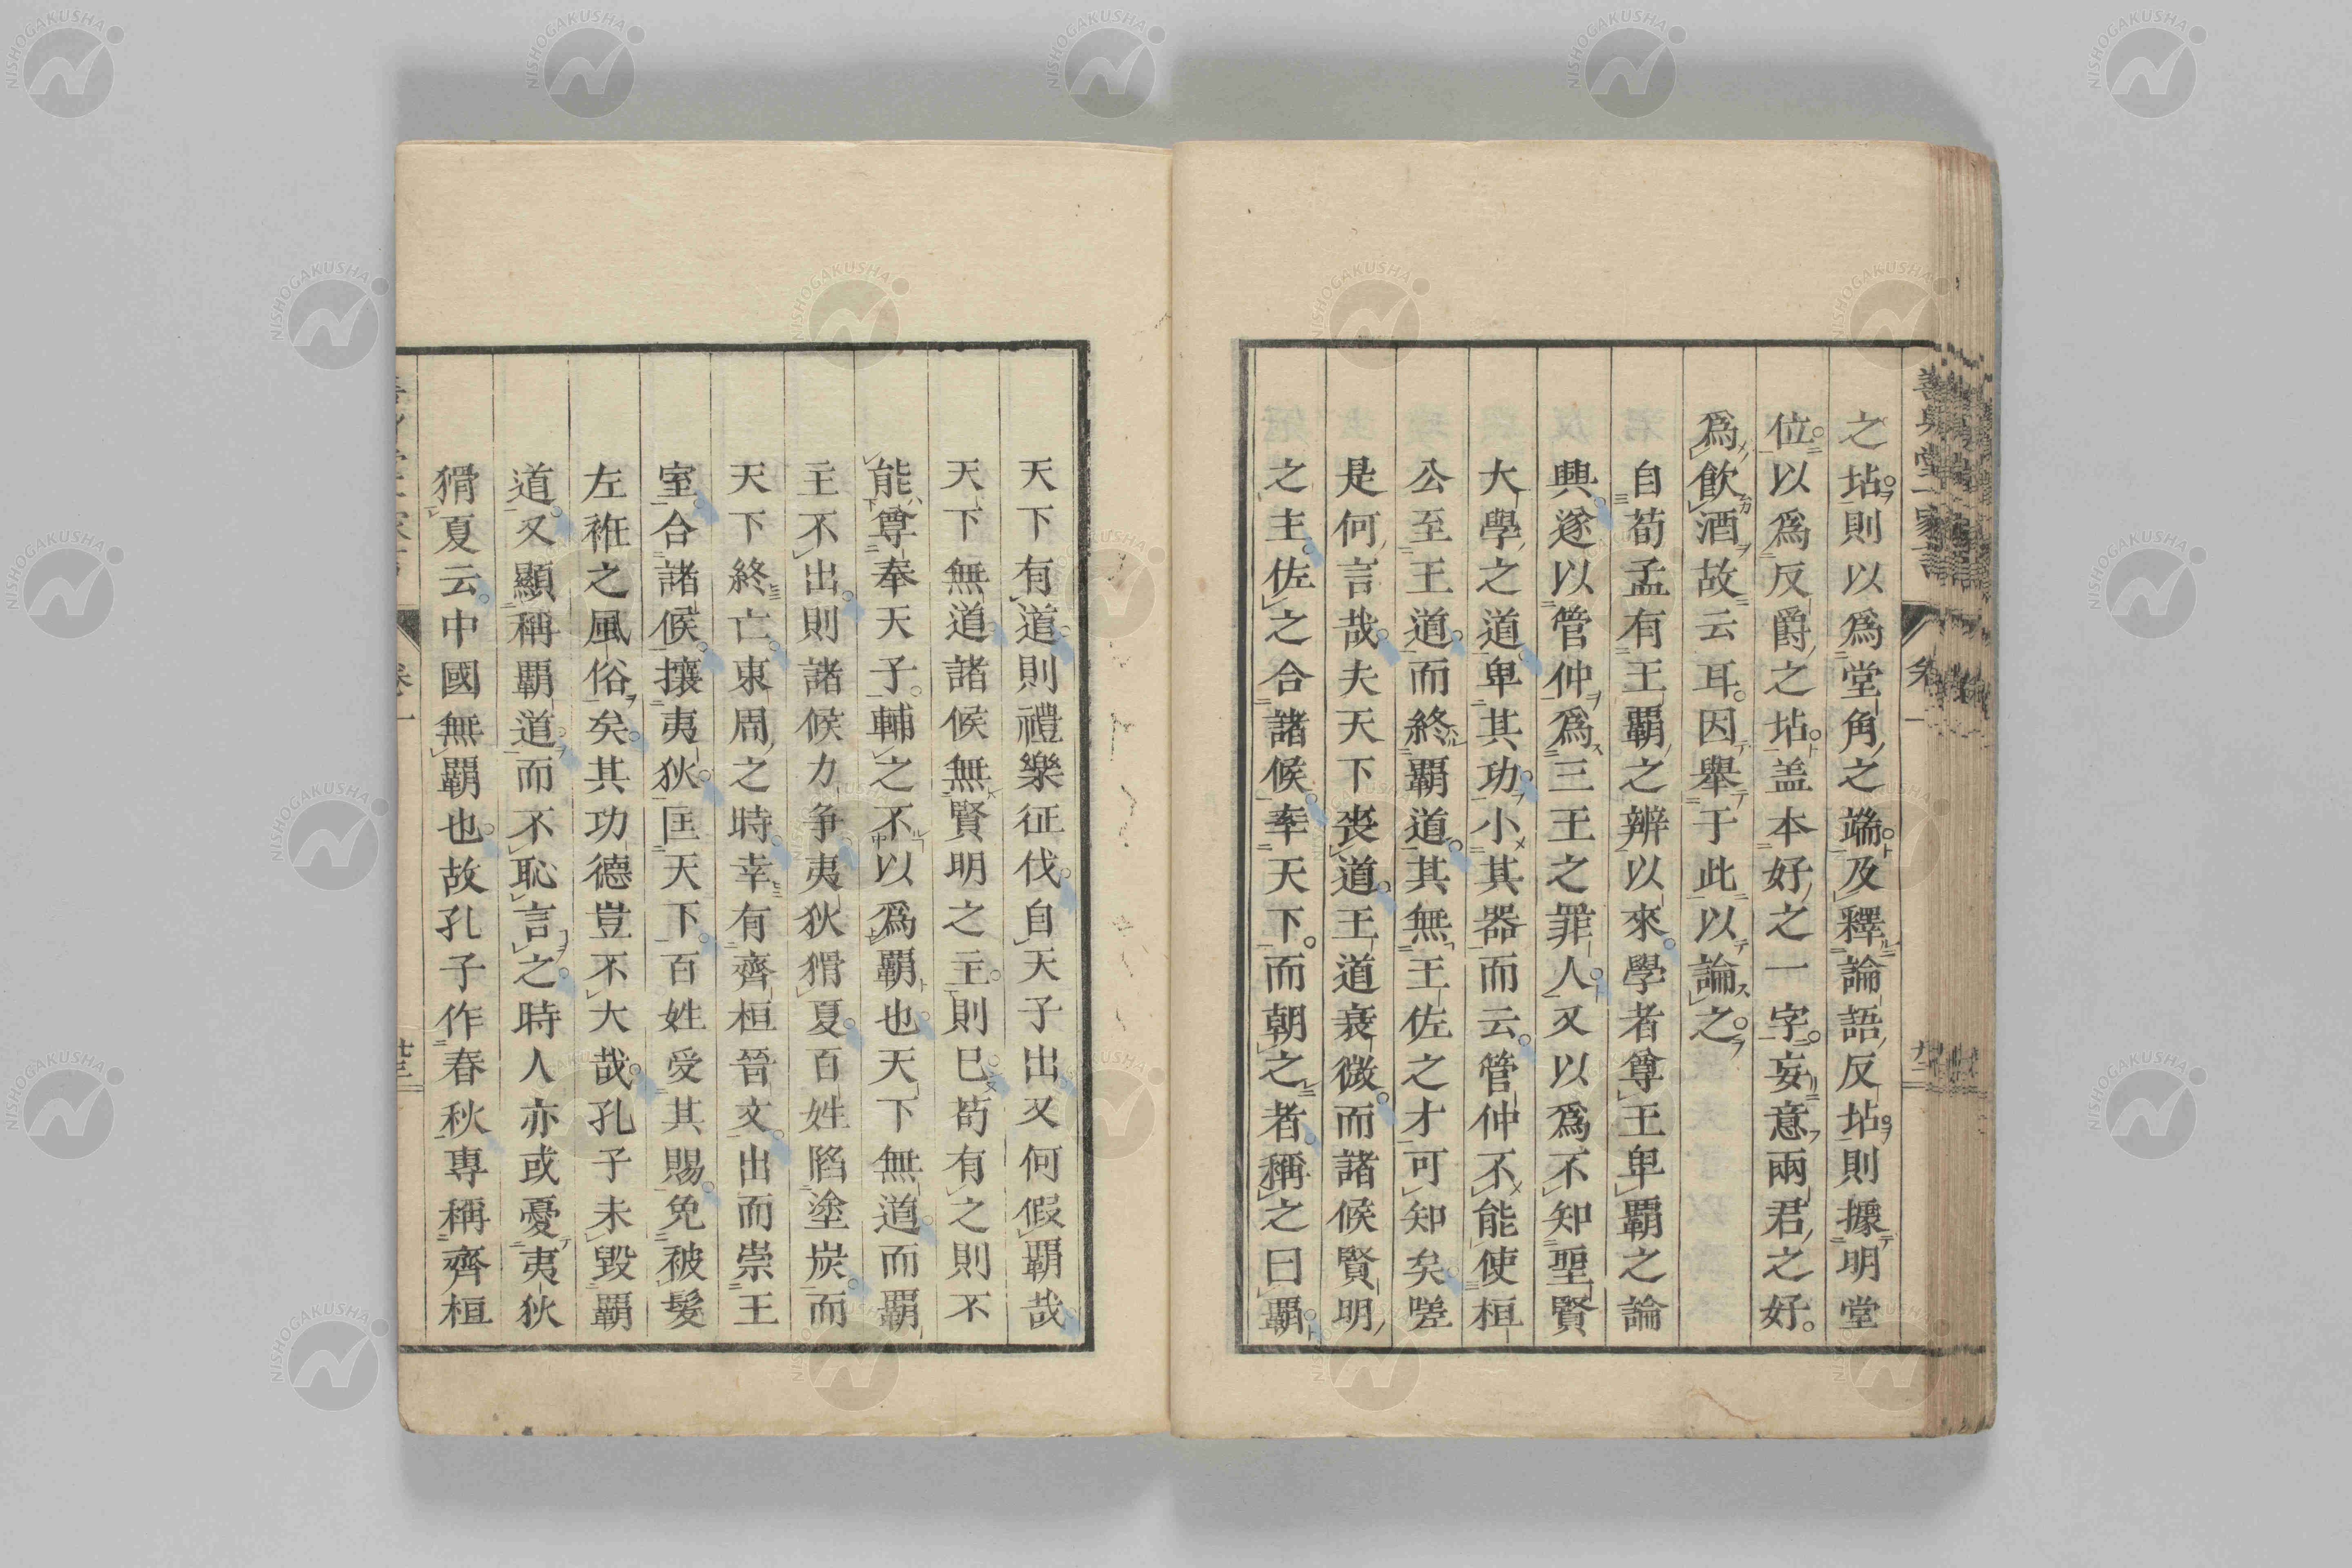 之坫則以爲堂角之端及釋論語反坫則據明堂
位以爲反爵之坫盖本好之一字妄意兩君之好
爲飲酒故云耳因舉于此以論之
自荀孟有王覇之辨以來學者尊王卑覇之論
興遂以管仲爲三王之罪人又以爲不知聖賢
大學之道卑其功小其器而云管仲不能使桓
公至王道而終覇道其無王佐之才可知矣嗟
是何言哉夫天下喪道王道衰微而諸候賢明
之主佐之合諸候奉天下而朝之者稱之曰覇
天下有道則禮樂征伐自天子出又何假覇哉
天下無道諸候無賢明之主則已苟有之則不
能尊奉天子輔之不以爲覇也天下無道而覇
主不出則諸候力争夷狄猾夏百姓陷塗炭而
天下終亡東周之時幸有齊桓晉文出而崇王
室合諸候攘夷狄匡天下百姓受其賜免被髮
左袵之風俗矣其功德豈不大哉孔子未毀覇
道又顯稱覇道而不恥言之時人亦或憂夷狄
猾夏云中國無覇也故孔子作春秋專稱齊桓
卷一
廿三
NISHOGAKUSHA